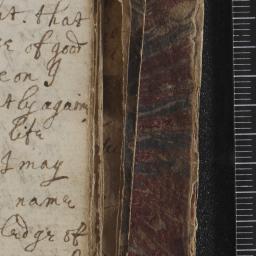 that
of good
eon I
t by again
life
I may
name
ledge of